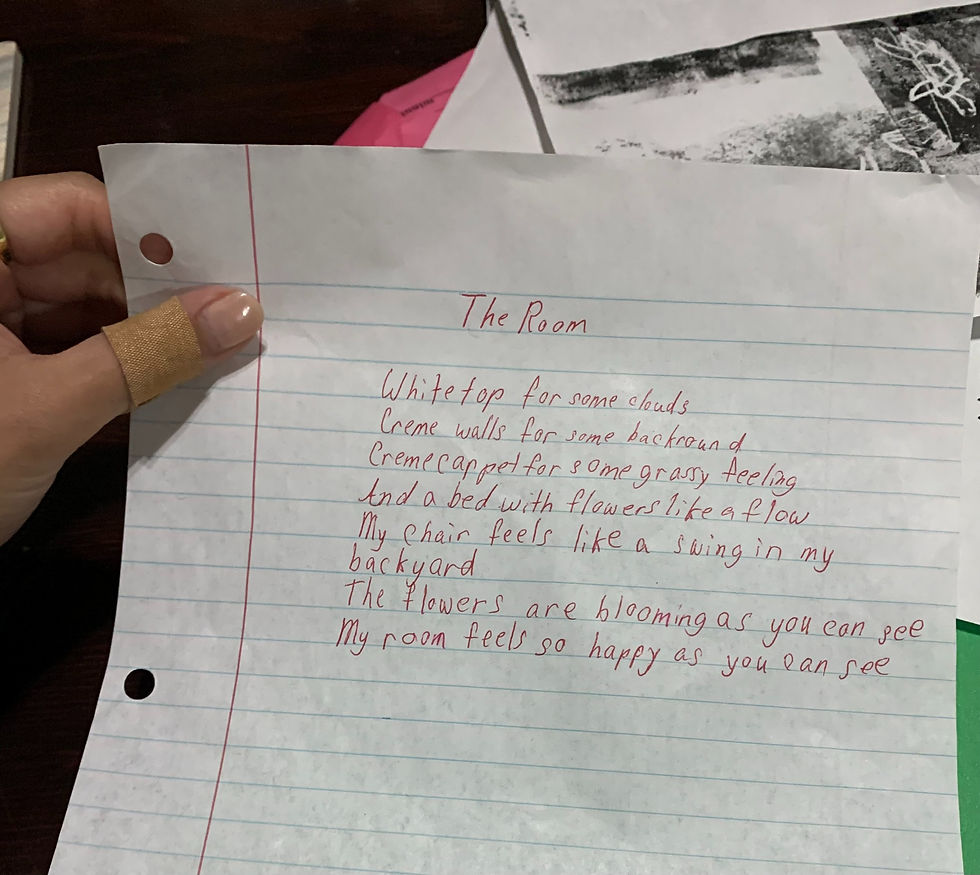 The Room
White top for some clouds
Creme walls for some backround
Creme carpet for some grassy feeling
And a bed with flowers like a flow
My chair feels like a swing in my
backyard
The flowers are blooming as you can see
My room feels so happy as you can see